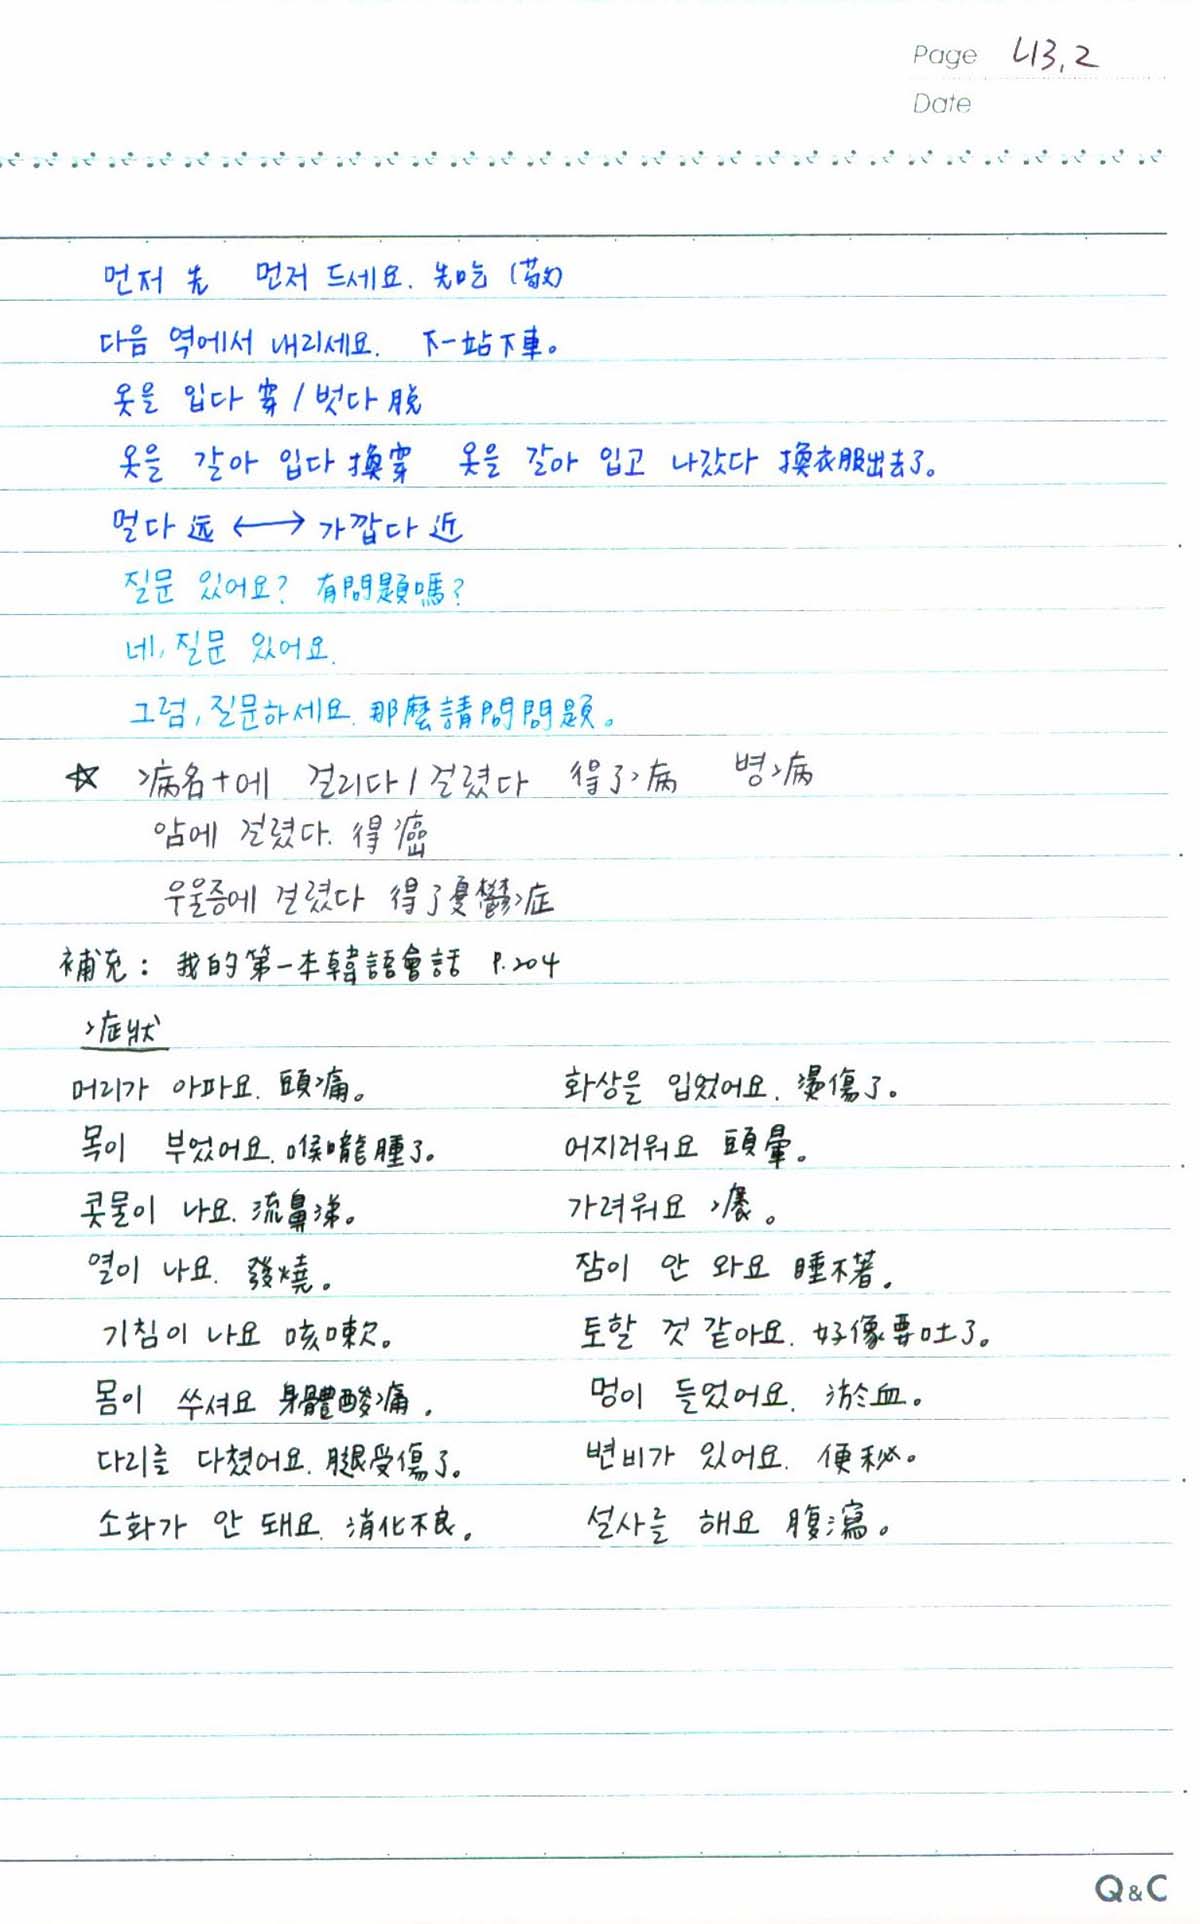 Page L13,2
Date
먼저 先 먼저 드세요. 先吃 (敬)
다음 역에서 내리세요. 下一站下車。
옷을 입다 穿 / 벗다 脫
옷을 갈아 입다 換穿 옷을 갈아 입고 나갔다 換衣服出去了。
멀다 远 ←→ 가깝다 近
질문 있어요? 有問題嗎?
네, 질문 있어요.
그럼, 질문하세요. 那麼請問問題。
☆ 病名+에 걸리다 / 걸렸다 得了病 병 病
암에 걸렸다. 得癌
우울증에 걸렸다 得了憂鬱症
補充: 我的第一本韓語會話 P.204
症狀
머리가 아파요. 頭痛。 화상을 입었어요. 燙傷了。
목이 부었어요. 喉嚨腫了。 어지러워요 頭暈。
콧물이 나요. 流鼻涕。 가려워요 癢。
열이 나요. 發燒。 잠이 안 와요 睡不著。
기침이 나요 咳嗽。 토할 것 같아요. 好像要吐了。
몸이 쑤셔요 身體酸痛。 멍이 들었어요. 淤血。
다리를 다쳤어요. 腿受傷了。 변비가 있어요. 便秘。
소화가 안 돼요. 消化不良。 설사를 해요 腹瀉。
Q&C